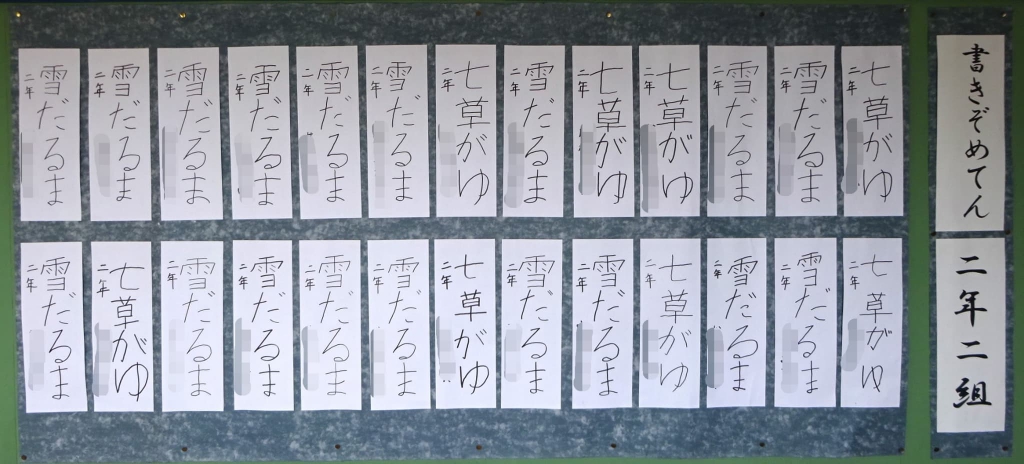 書きぞめてん
二年二組
七草がゆ
二年
雪だるま
二年
雪だるま
二年
七草がゆ
二年
七草がゆ
二年
雪だるま
二年
七草がゆ
二年
雪だるま
二年
雪だるま
二年
雪だるま
二年
雪だるま
二年
雪だるま
二年
雪だるま
二年
七草がゆ
二年
雪だるま
二年
雪だるま
二年
七草がゆ
二年
雪だるま
二年
雪だるま
二年
七草がゆ
二年
雪だるま
二年
雪だるま
二年
雪だるま
二年
雪だるま
二年
七草がゆ
二年
雪だるま
二年